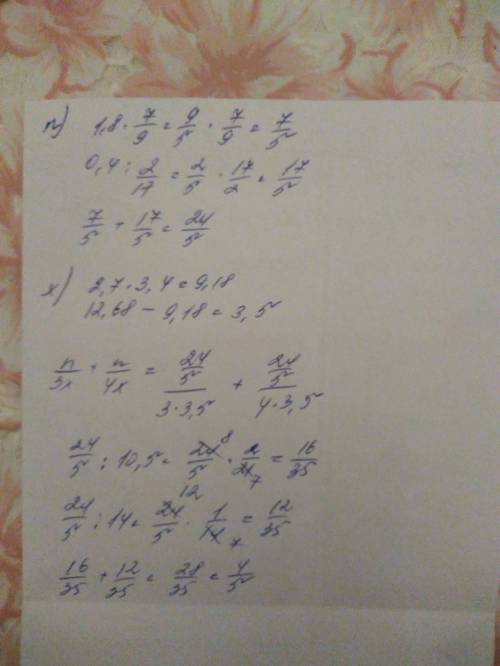 n) 1,8 · 7/9 = 9/5 · 7/9 = 7/5
0,4 : 2/17 = 2/5 · 17/2 = 17/5
7/5 + 17/5 = 24/5
x) 2,7 · 3,4 = 9,18
12,68 - 9,18 = 3,5
n/3x + n/4x = 24/5/3·3,5 + 24/5/4·3,5
24/5 : 10,5 = 24/5 8 · 2/21 7 = 16/35
24/5 : 14 = 24/5 12 · 1/14 7 = 12/35
16/35 + 12/35 = 28/35 = 4/5